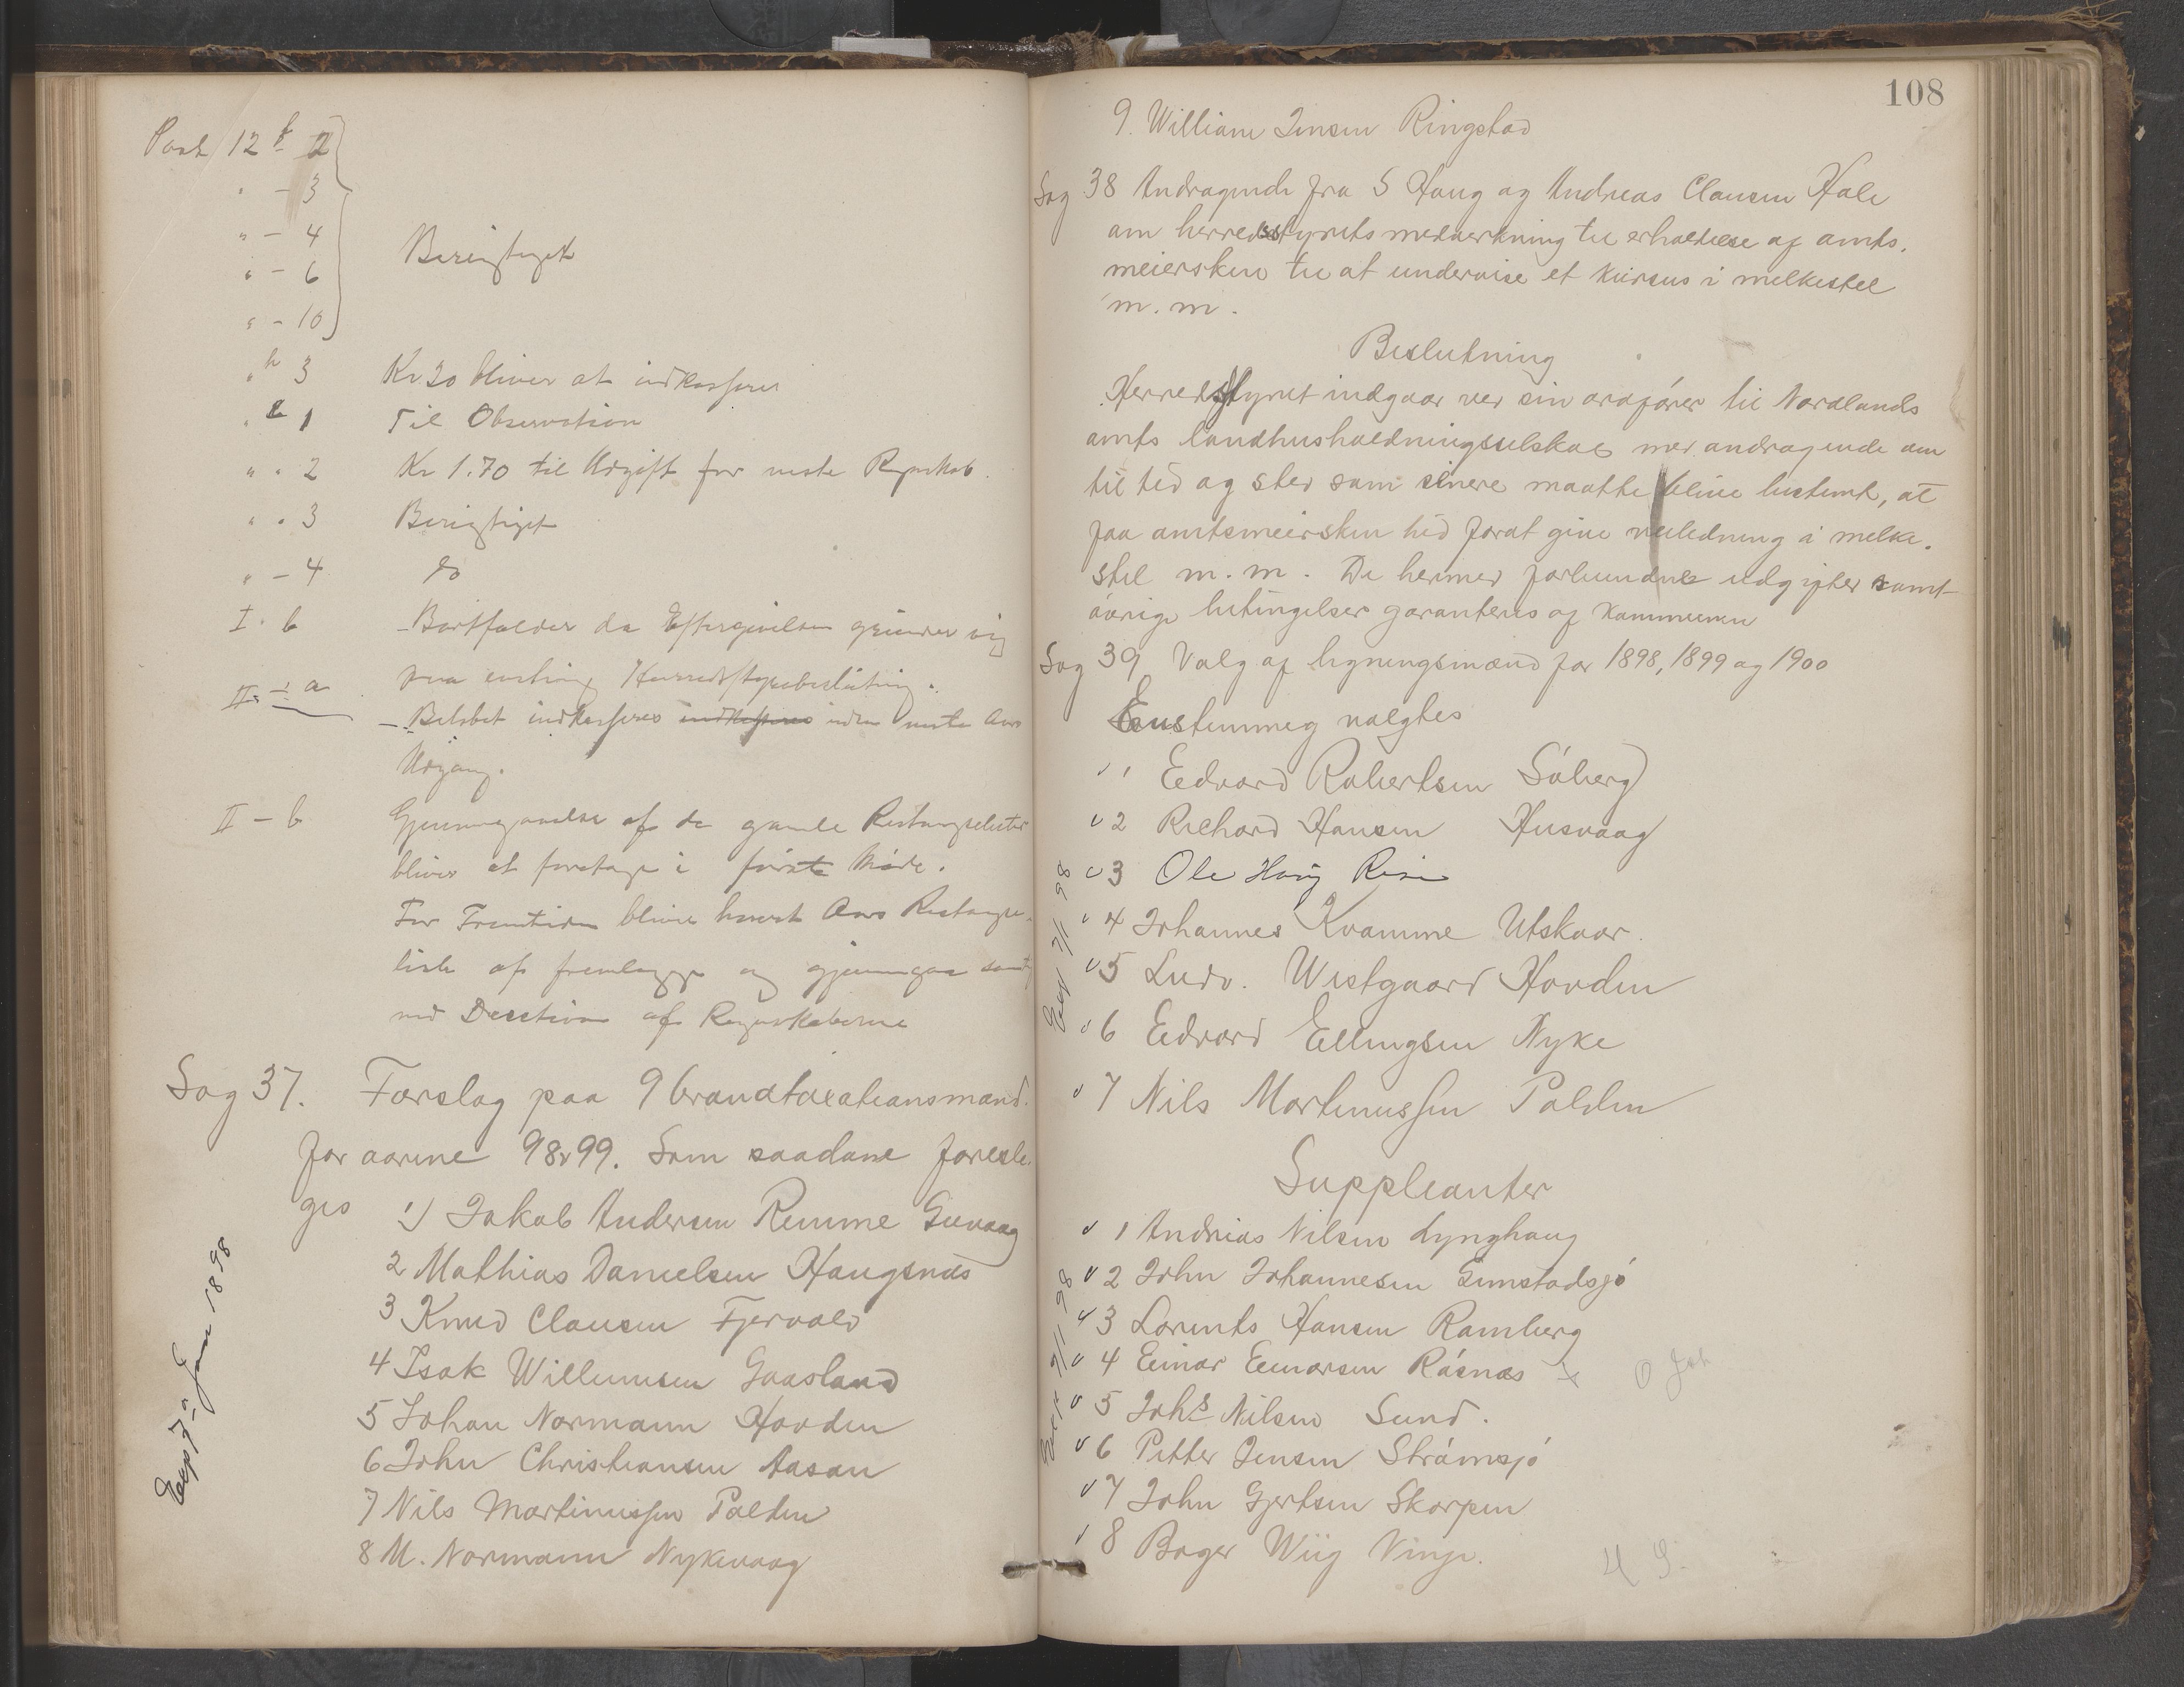 Post 12 f 2
" - 3
" - 4
" - 6
" - 10
Berigtiget
" h 3 Kr 20 bliver at indkassere
" 1 Til Observation
" " 2 Kr 1.70 til Udgift for neste Regnskab
" " 3 Berigtiget
" - 4 do
I - b - Bortfalder da Eftergivelsen grunder sig
paa Herredsstyrebeslutning.
II - a - Beløbet indkasseres indkasseres inden neste Aars
Udgang.
II - b Gjennemgaaelse af de gamle Restanselister
bliver at foretage i første Møde.
For Fremtiden bliver hvert Aars Restanse-
liste at fremlegge og gjennemgaa
ved Decision af Regnskaberne
Sag 37. Forslag paa 9 brandtaxationsmænd
for aarene 98 & 99. Som saadane foresle-
ges 1) Jakob Andersen Remme Guvaag
2 Mathias Danielsen Haugsnæs
3 Knud Clausen Fjervold
4 Isak Willumsen Gaasland
5 Johan Normann Hovden
6 John Christiansen Aasan
7 Nils Martinussen Polden
8 M. Normann Nykvaag
Exp 7de Jan 1898
108
9. William Jensen Ringstad
Sag 38 Andragende fra S Haug og Andreas Clausen Hale
om herredsstyrets medverkning til erholdelse af amts-
meiersken til at undervise et kursus i melkestel
m.m.
Beslutning
Herredsstyret indgaar ved sin ordfører til Nordlands
amts landhusholdningsselskab med andragende om
til tid og sted som senere maatte blive bestemt, at
faa amtsmeiersken hid forat give veiledning i melke-
stel m.m. De hermed forbundne udgifter samt
øvrige betingelser garanteres af kommunen
Sag 39 Valg af ligningsmænd for 1898, 1899 og 1900
Enstemmig valgtes
v 1 Edvard Robertsen Søberg
v 2 Richard Hansen Husvaag
v 3 Ole Haug Risø
v 4 Johannes Kvamme Utskaar.
v 5 Ludv. Westgaard Hovden
v 6 Edvard Ellingsen Nyke
v 7 Nils Martinussen Polden
Exp 7/1 98
Suppleanter
v 1 Andreas Nilsen Lynghaug
v 2 John Johannesen Gunstadsjø
v 3 Lorents Hansen Ramberg
v 4 Einar Einarsen Råsnæs x
v 5 Johs Nilsen Sund.
v 6 Petter Jensen Strømsjø
v 7 John Gjertsen Skorpen
v 8 Boger Wiig Vinje.
Exp 7/1 98